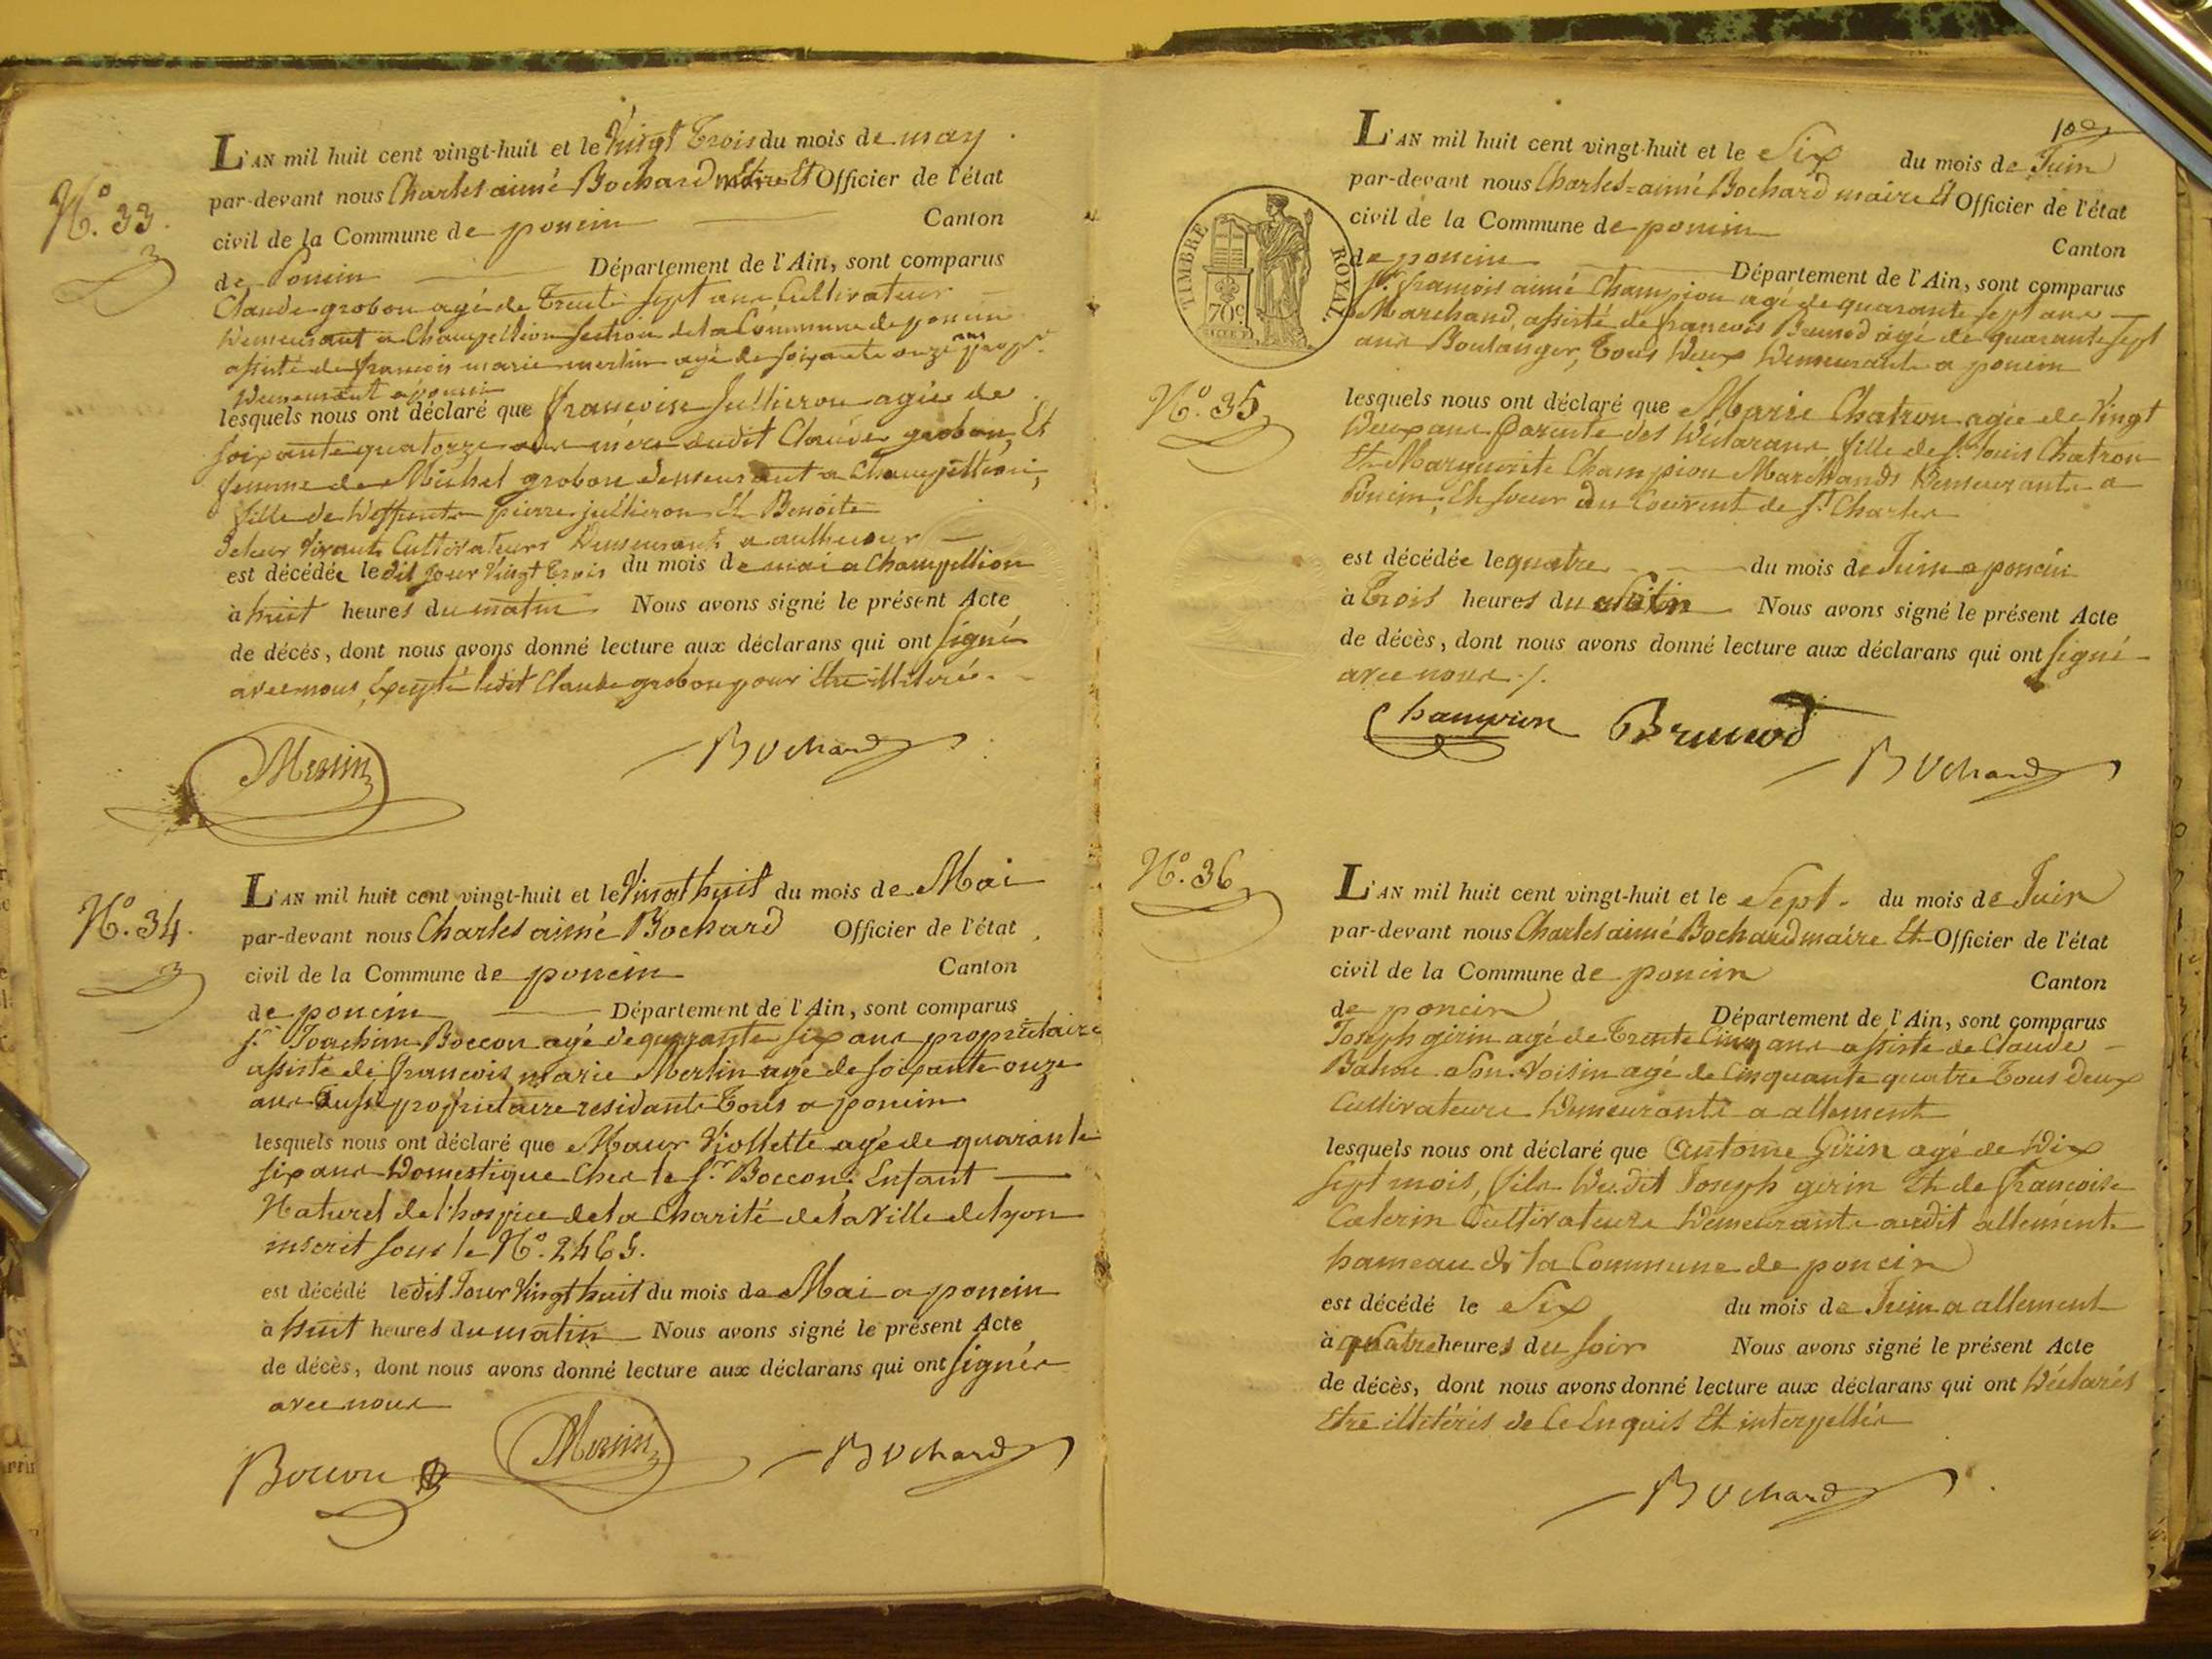 N.º 33.
L'AN mil huit cent vingt-huit et le Vingt Trois du mois de may
par-devant nous Charles aimé Bochard maire Et Officier de l'état
civil de la Commune de poncin Canton
de Poncin Département de l'Ain, sont comparus
Claude grobon agé de Trente Sept ans Cultivateur
Demeurant a Champellion Section de la Commune de poncin
assisté de francois marie merlin agé de soixante onze ans propre
Demeurant a poncin
lesquels nous ont déclaré que francoise Jullieron agée de
soixante quatorze ans mère dudit Claude grobon, Et
femme de Michel grobon demeurant a Champellion,
fille de Deffunts pierre jullieron Et Benoite
de leur Vivants Cultivateurs Demeurants a
est décédée ledit jour Vingt Trois du mois de mai a Champellion
à huit heures du matin Nous avons signé le présent Acte
de décés, dont nous avons donné lecture aux déclarans qui ont signé
avec nous, Excepté ledit Claude grobon pour Etre illitéré.
Merlin
Bochard
N.º 34.
L'AN mil huit cent vingt-huit et le Vingt huit du mois de Mai
par-devant nous Charles aimé Bochard Officier de l'état
civil de la Commune de poncin Canton
de poncin Département de l'Ain, sont comparus
s.r Joachim Boccon agé de quarante six ans propriétaire
assisté de francois marie Merlin agé de soixante onze
ans aussi propriétaire residants Tous a poncin
lesquels nous ont déclaré que Maur Viollette agé de quarante
six ans Domestique Chez le S.r Boccon. Enfant
Naturel de l'hospice de la Charité de la Ville de lyon
inscrit sous le N.º
est décédé ledit Jour Vingt huit du mois de Mai a poncin
à huit heures du matin Nous avons signé le présent Acte
de décès, dont nous avons donné lecture aux déclarans qui ont signés
avec nous
Boccon
Merlin
Bochard
L'AN mil huit cent vingt-huit et le Six du mois de Juin
par-devant nous Charles=aimé Bochard maire Et Officier de l'état
civil de la Commune de poncin
Canton
de poncin Département de l'Ain, sont comparus
TIMBRE ROYAL.
70c.
S.r francois aimé Champion agé de quarante sept ans
Marchand, assisté de francois Brunod agé de quarante sept
ans Boulanger, Tous Deux Demeurants a poncin
N.º 35
lesquels nous ont déclaré que Marie Chatron agée de Vingt
Deux ans Parente des Déclarans fille de S.r Louis Chatron
Et Marguerite Champion Marchands Demeurants a
Poncin; Et soeur du Couvent de S.t Charles
est décédée le quatre du mois de Juin a poncin
à Trois heures du Nous avons signé le présent Acte
de décès, dont nous avons donné lecture aux déclarans qui ont signé
avec nous ./.
Champion Brunod
Bochard
N.º 36
L'AN mil huit cent vingt-huit et le Sept. du mois de Juin
par-devant nous Charles aimé Bochard maire Et Officier de l'état
civil de la Commune de poncin Canton
de poncin Département de l'Ain, sont comparus
Joseph girin agé de Trente Cinq ans assisté de Claude
son Voisin agé de Cinquante quatre Tous deux
Cultivateurs Demeurants a allement
lesquels nous ont déclaré que Antoine Girin agé de Dix
Sept mois, fils Dudit Joseph girin Et de francoise
Caterin Cultivateurs Demeurants audit allement
hameau de la Commune de poncin
est décédé le Six du mois de Juin a allement
à quatre heures du soir Nous avons signé le présent Acte
de décès, dont nous avons donné lecture aux déclarans qui ont Déclarés
Etre illitérés de ce Enquis Et interpellés
Bochard